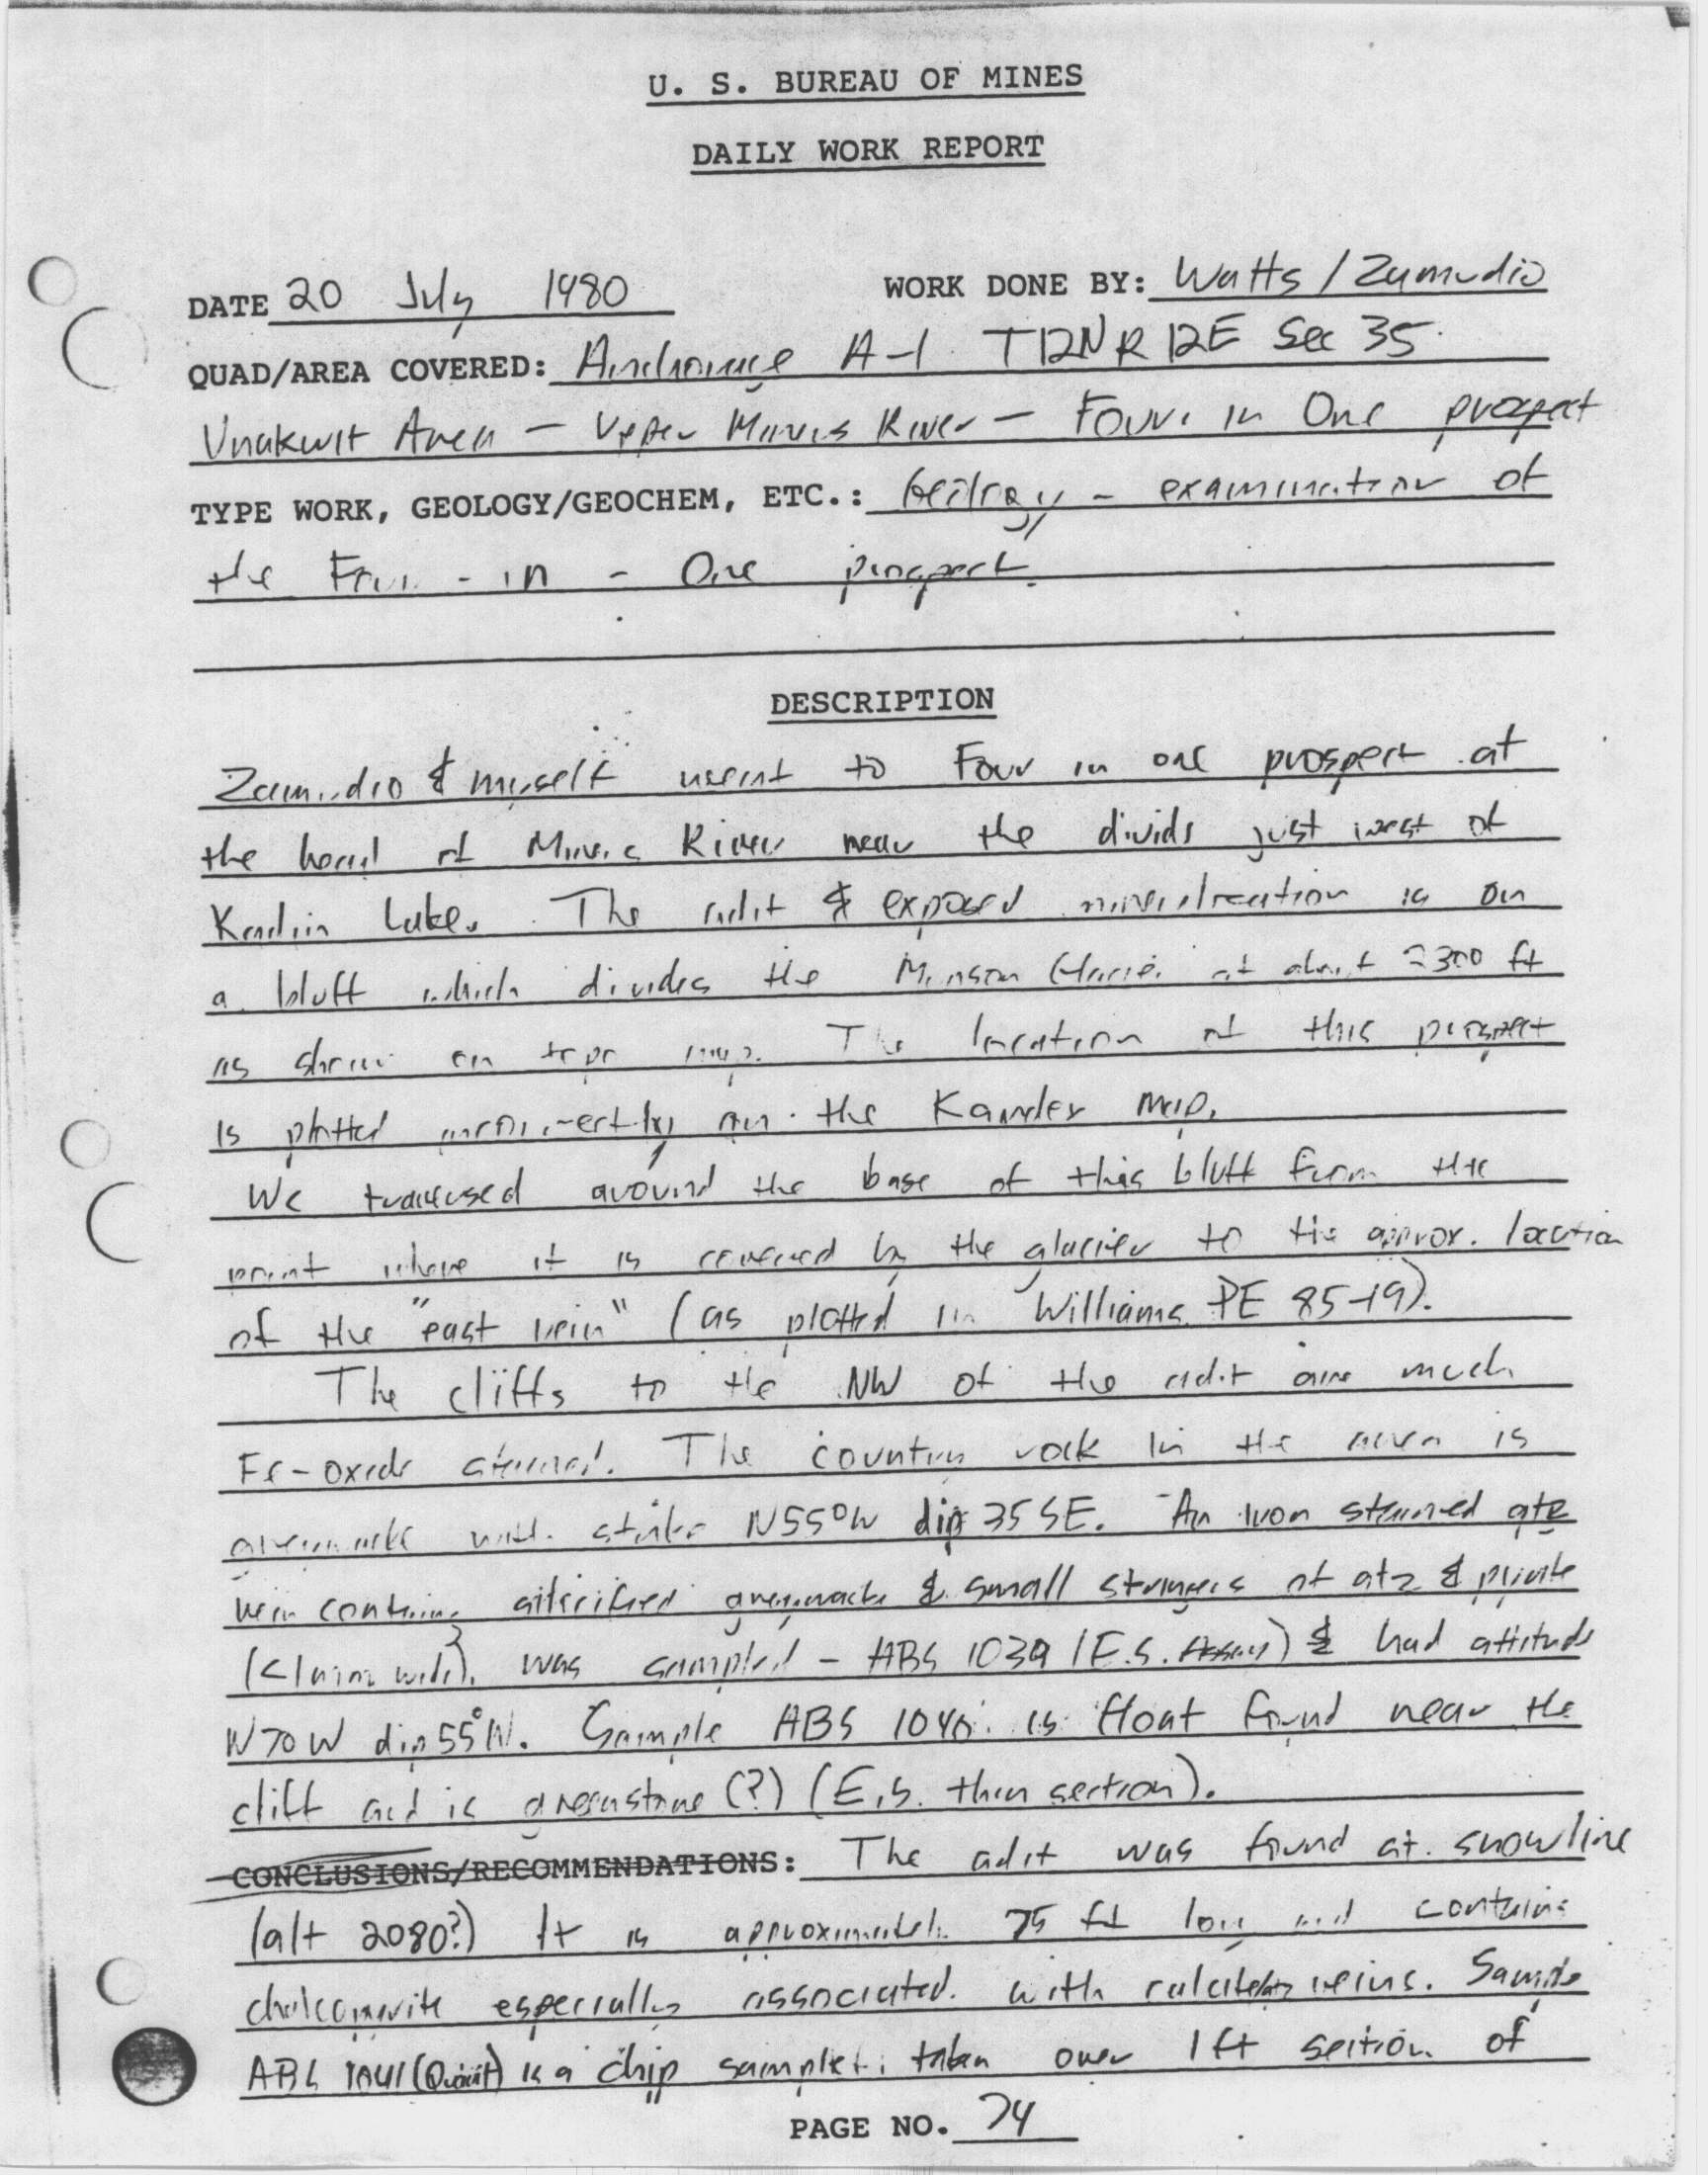 U. S. BUREAU OF MINES
DAILY WORK REPORT
DATE 20 July 1980 WORK DONE BY: Watts / Zamudio
QUAD/AREA COVERED: Anchorage A-1 T12N R12E Sec 35
Unakwit Area - Upper River - Four in One prospect
TYPE WORK, GEOLOGY/GEOCHEM, ETC.: Geology - examination of
the Four - in - One prospect.
DESCRIPTION
Zamudio & myself went to Four in one prospect at
the head of River near the divide just west of
Lake. The adit & exposed mineralization is on
a bluff which divides the Glacier at about 2300 ft
as shown on topo map. The location of this prospect
is plotted incorrectly on the map.
We traversed around the base of this bluff from the
point where it is covered by the glacier to the approx. location
of the "east vein" (as plotted in Williams PE 85-19).
The cliffs to the NW of the adit are much
Fe-oxide stained. The country rock in the area is
greywacke with strike N55°W dip 35 SE. An iron stained qtz
vein containing silicified greywacke & small stringers of qtz & pyrite
(<1m wide), was sampled - ABS 1039 (E.S. Assay) & had attitude
N70W dip 55°N. Sample ABS 1040 is float found near the
cliff and is greenstone (?) (E.S. thin section).
CONCLUSIONS/RECOMMENDATIONS: The adit was found at snowline
(alt 2080?) It is approximately 75 ft long and contains
chalcopyrite especially associated with veins. Sample
ABS 1041 is a chip sample taken over 1 ft section of
PAGE NO. 74